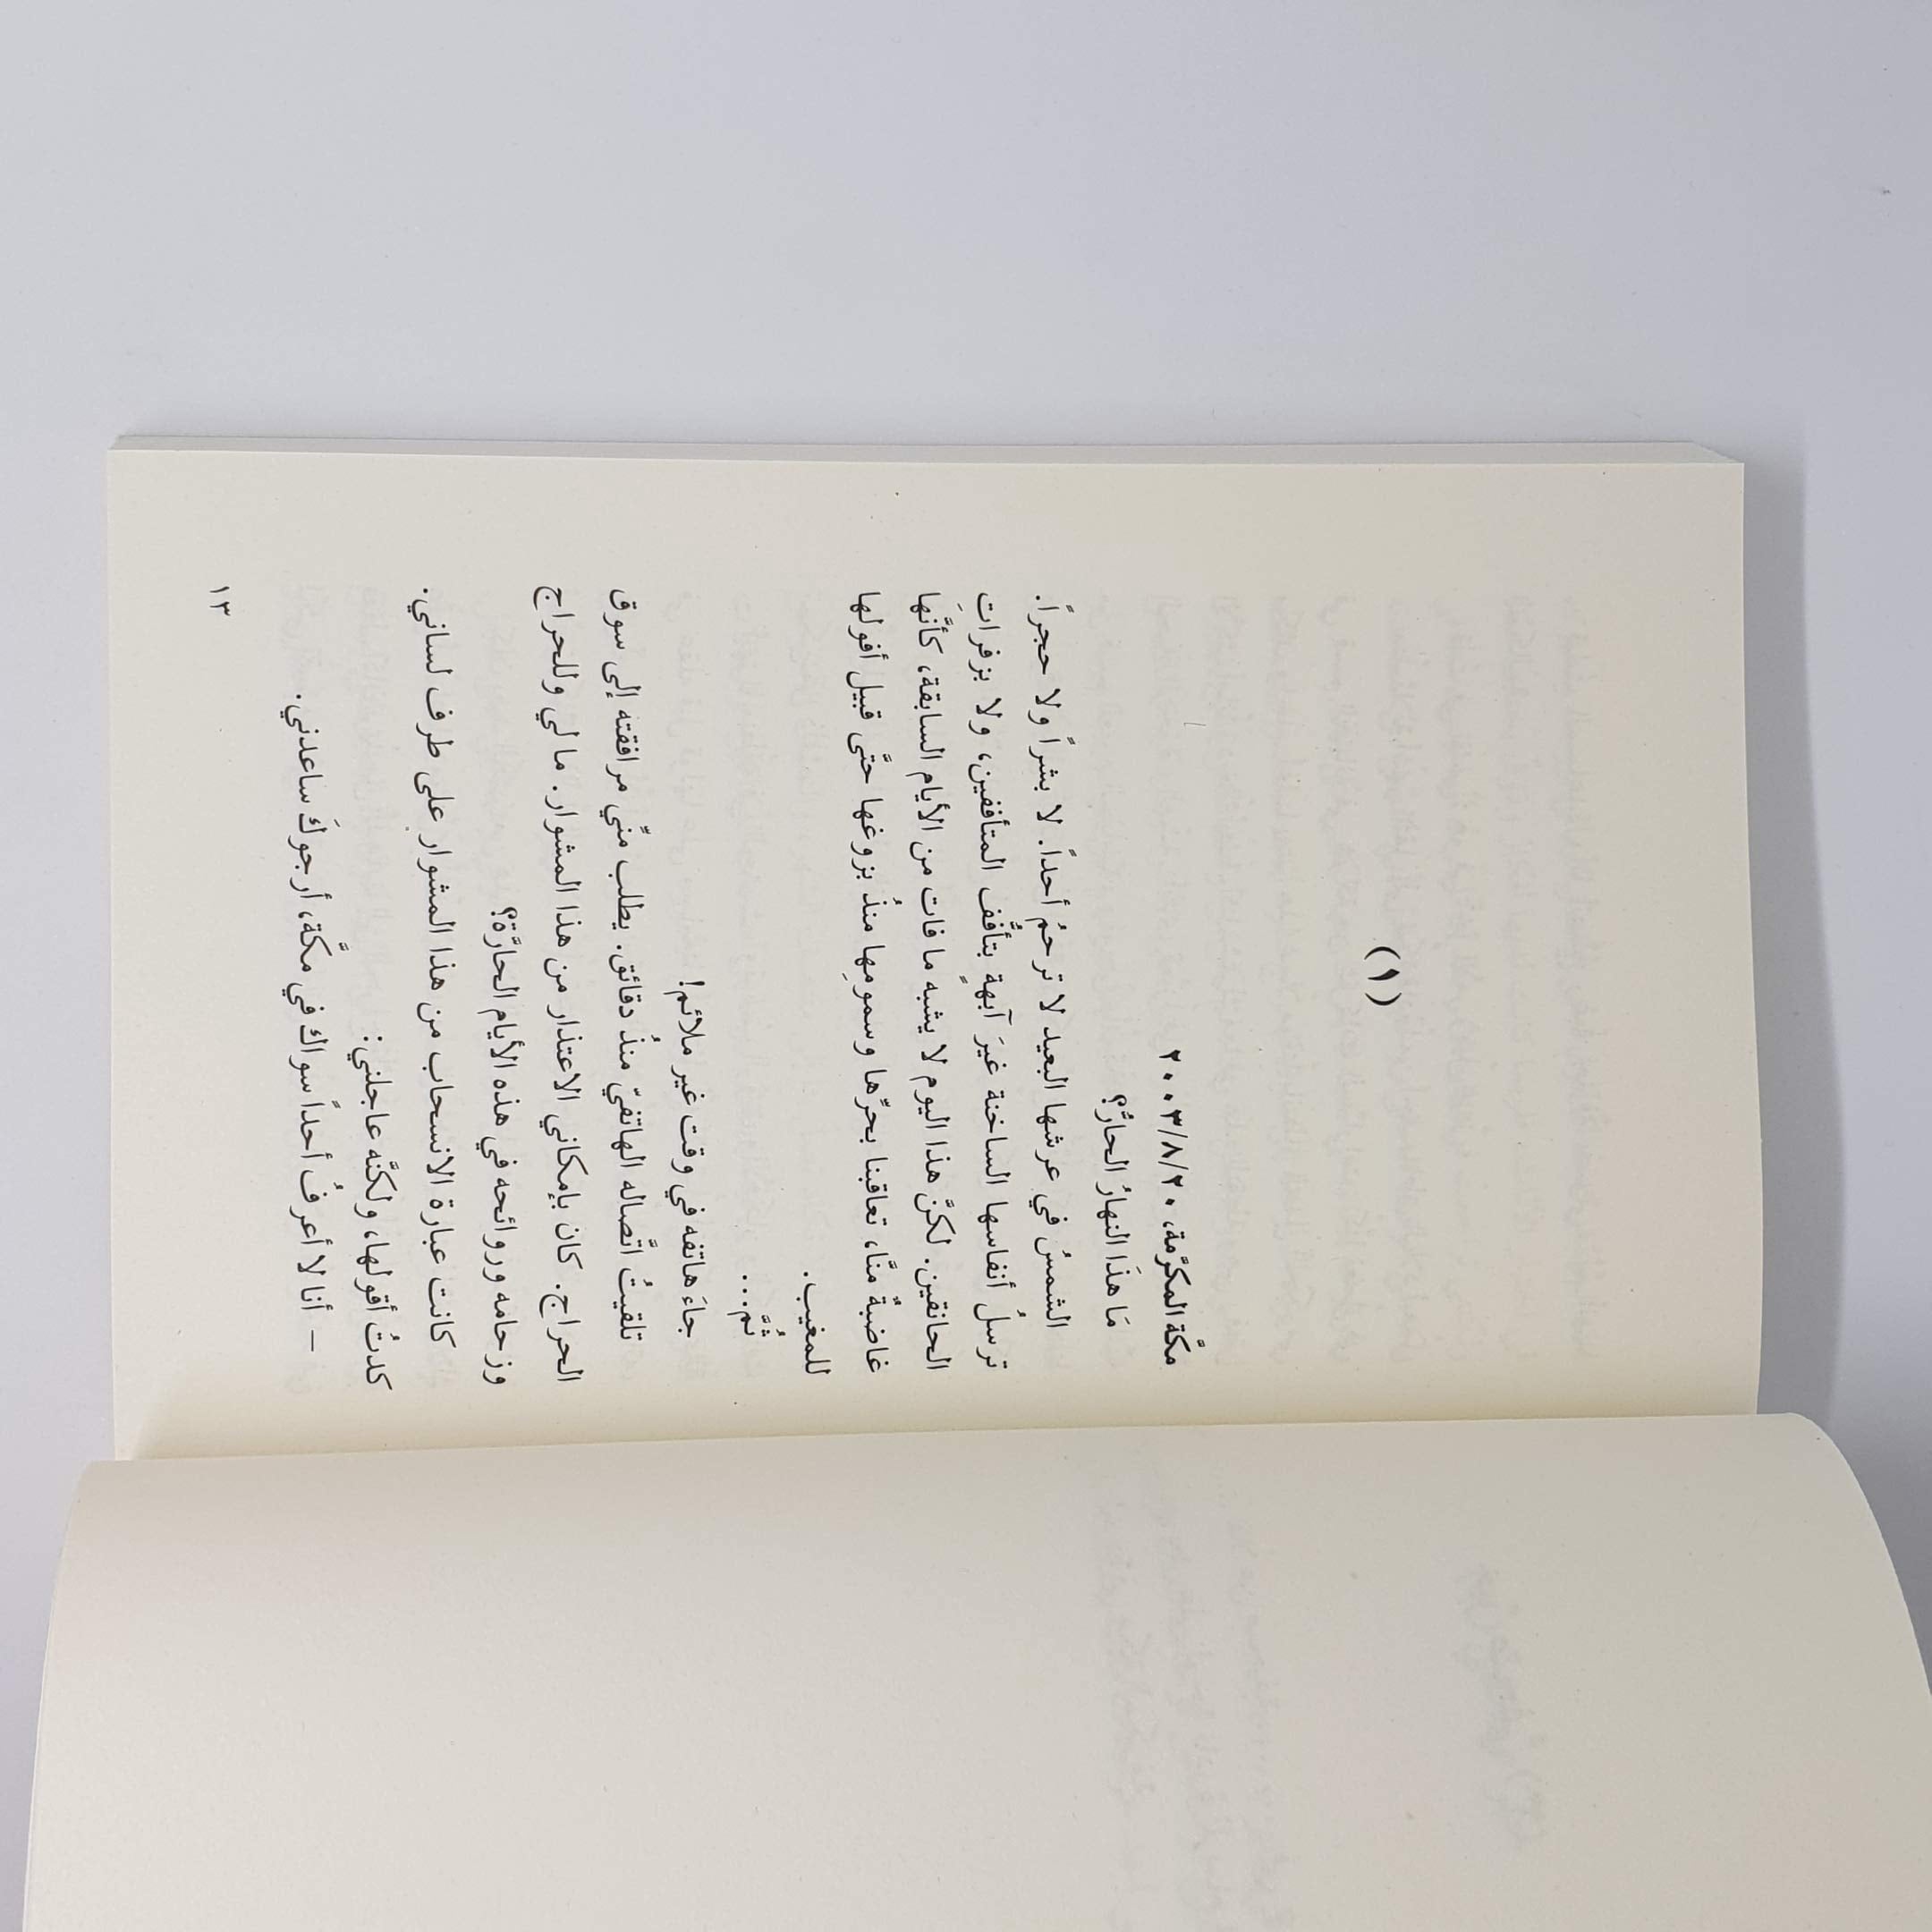 (١)
مكَّة المكرَّمة، ٢٠٠٣/٨/٢٠
مَا هذَا النهارُ الحارُّ؟
الشمسُ في عرشها البعيد لا ترحمُ أحداً. لا بشراً ولا حجراً.
ترسلُ أنفاسها الساخنة غيرَ آبهةٍ بتأفُّف المتأففين، ولا بزفرات
الحانقين. لكنَّ هذا اليوم لا يشبه ما فات من الأيام السابقة، كأنَّهَا
غاضبةٌ منَّا، تعاقبنا بحرِّها وسمومِها منذُ بزوغها حتَّى قبيل أفولها
للمغيب.
ثُمَّ...
جاءَ هاتفه في وقت غير ملائم!
تلقيتُ اتَّصاله الهاتفيّ منذُ دقائق. يطلب منِّي مرافقته إلى سوق
الحراج. كان بإمكاني الاعتذار من هذا المشوار. ما لي وللحراج
وزحامه وروائحه في هذه الأيام الحارَّة؟
كانت عبارة الانسحاب من هذا المشوار على طرف لساني.
كدتُ أقولها، ولكنَّه عاجلني:
– أنا لا أعرفُ أحداً سواك في مكَّة، أرجوكَ ساعدني.
١٣